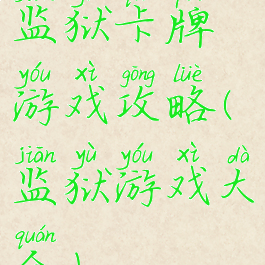 监狱卡牌
yóu xì gōng lüè
游戏攻略(
jiān yù yóu xì dà
监狱游戏大
quán